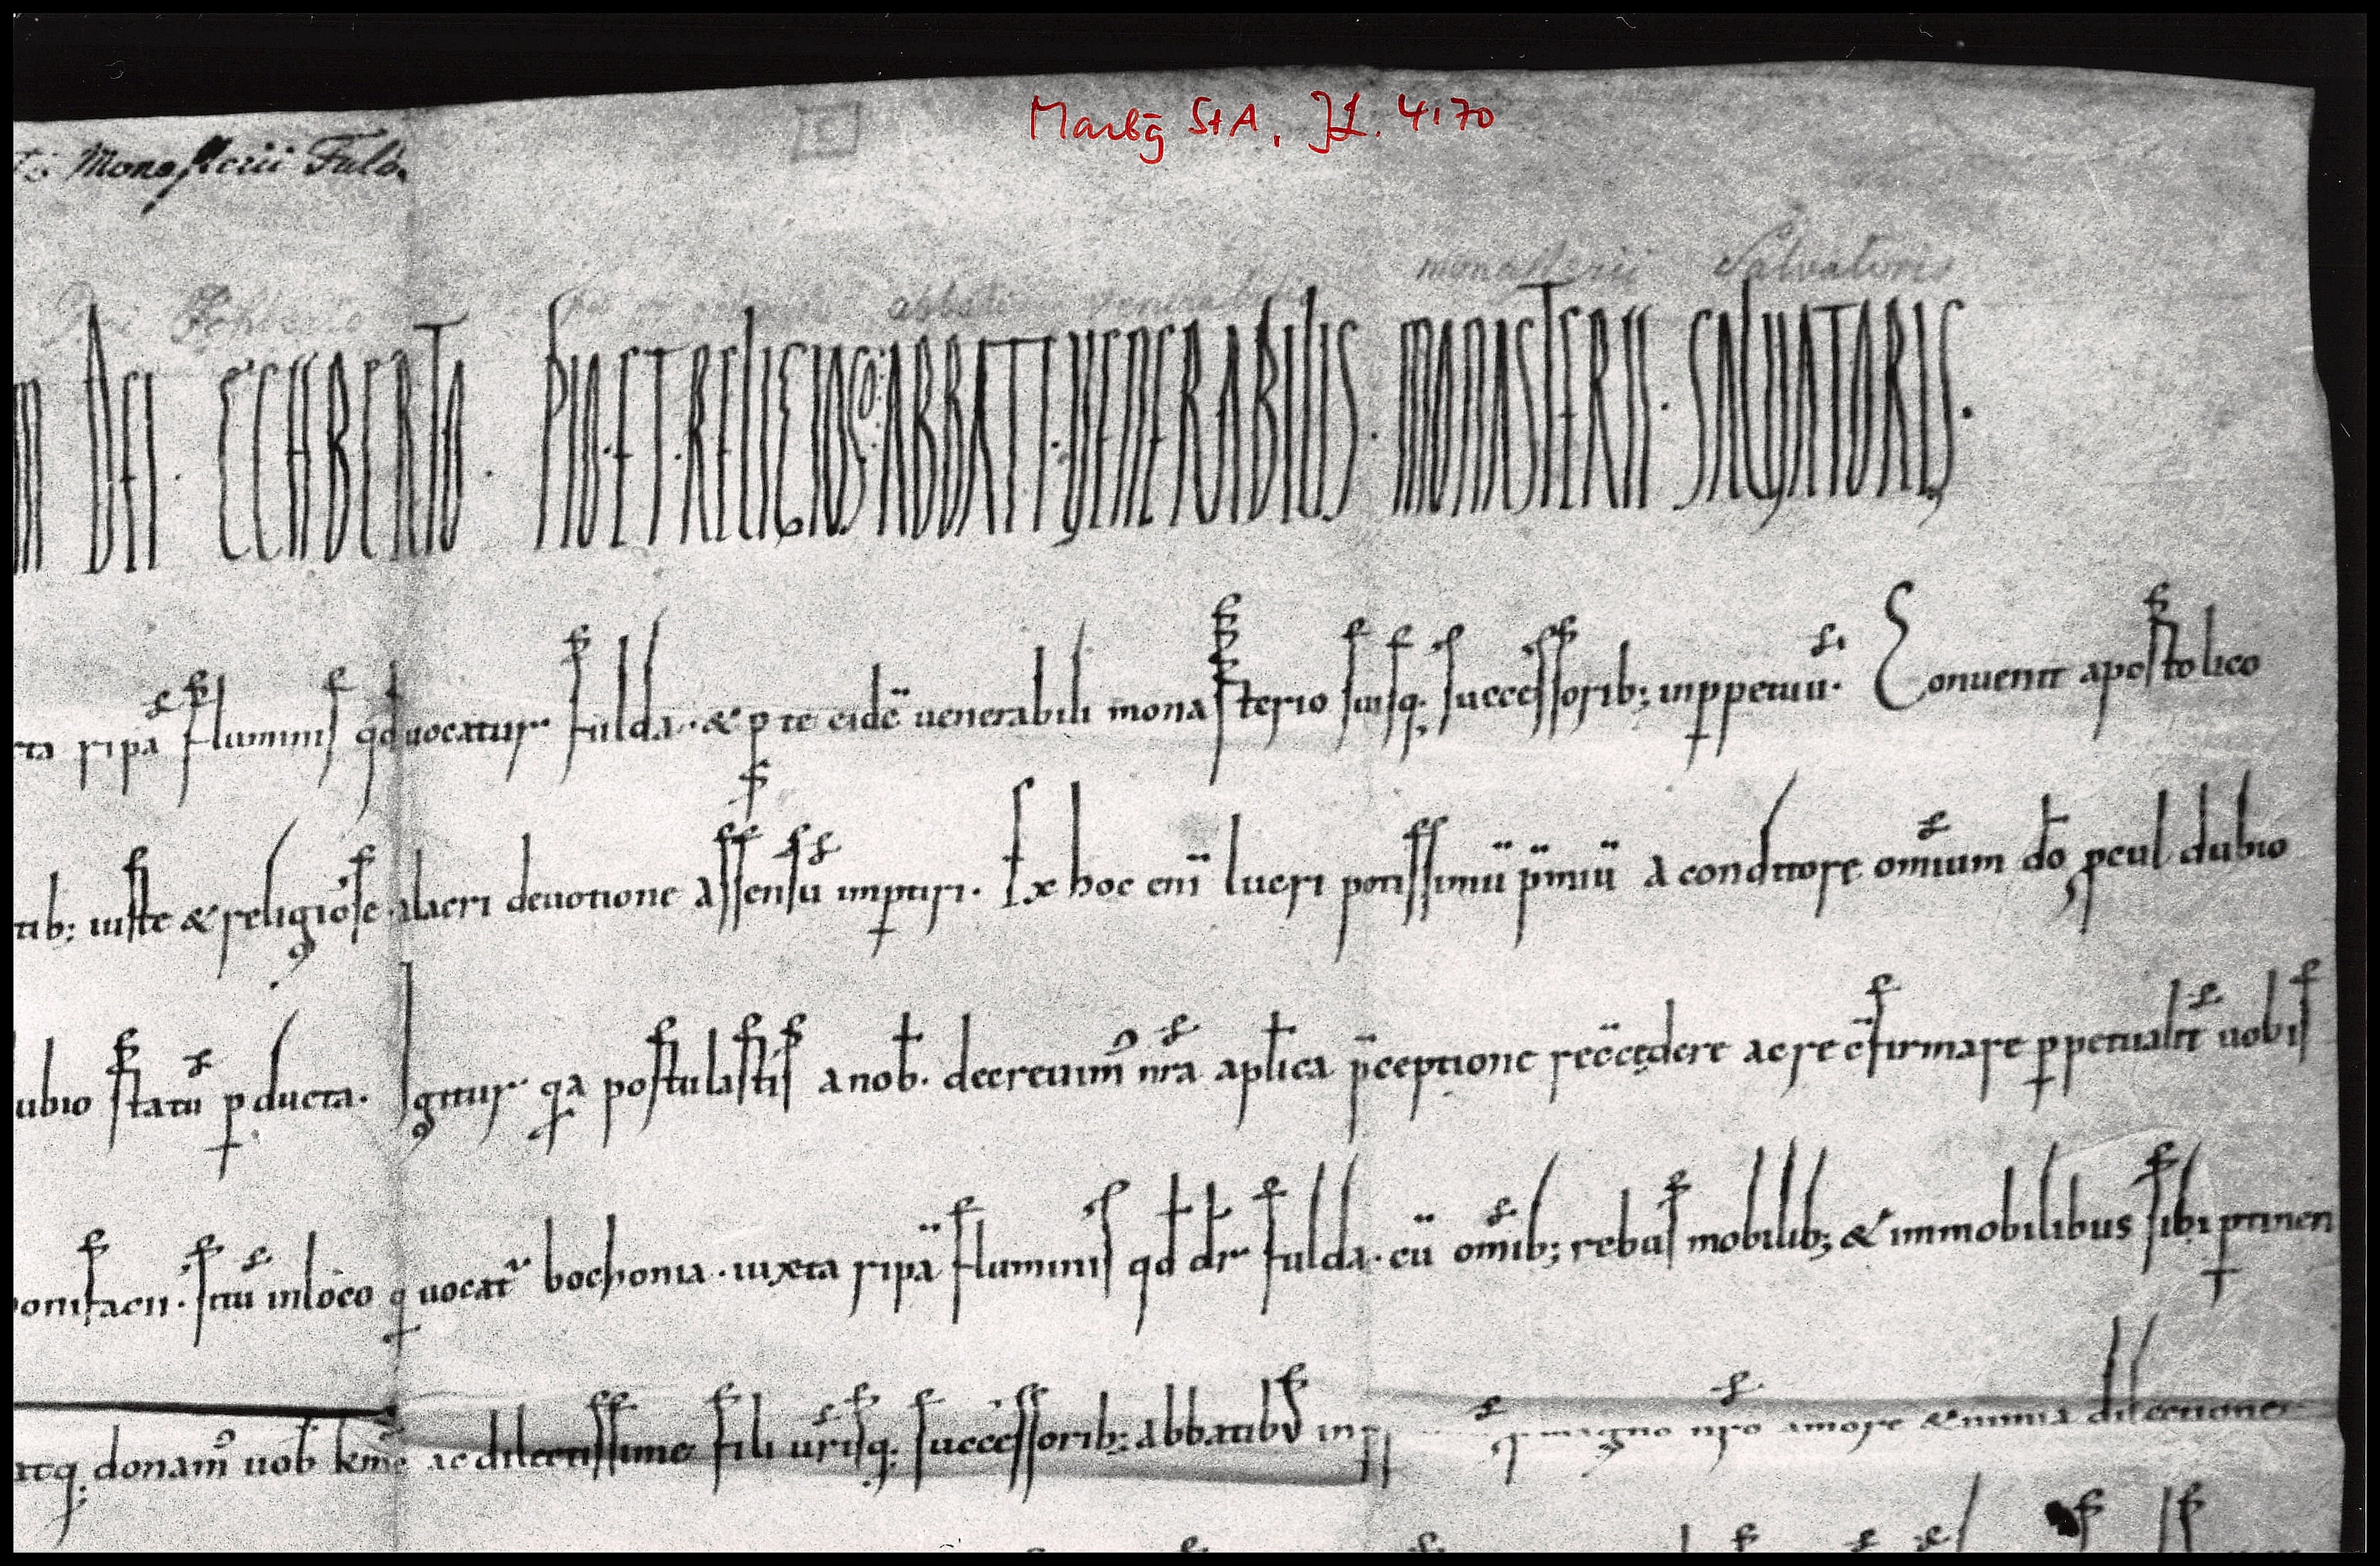 Marbg StA, JL. 4170
Monasterii Fuld.
monasterii Salvatoris
DEI · ECHBERTO · PIO · ET · RELIGIOSO · ABBATI · VENERABILIS · MONASTERII · SALVATORIS ·
ripa fluminis qd uocatur fulda · & p te eidē uenerabili monasterio suisq; successorib; inppetuū · Conuenit apostolico
iuste & religiose alacri deuotione assensū imptiri · Ex hoc eni lucri potissimū pmiū a conditore omium dō pcul dubio
statū pducta · Igitur qa postulastis a nob · decreuim nra aplica pceptione recedere ac re cfirmare ppetualit uobis
situ in loco q uocat bochonia · iuxta ripā fluminis qd dr fulda · cū omib; rebus mobilib; & immobilibus sibi ptinen
atq; donam uob kme ac dilectissime fili urisq; successorib; abbatibus inpp magno nro amore & nimia dilectione